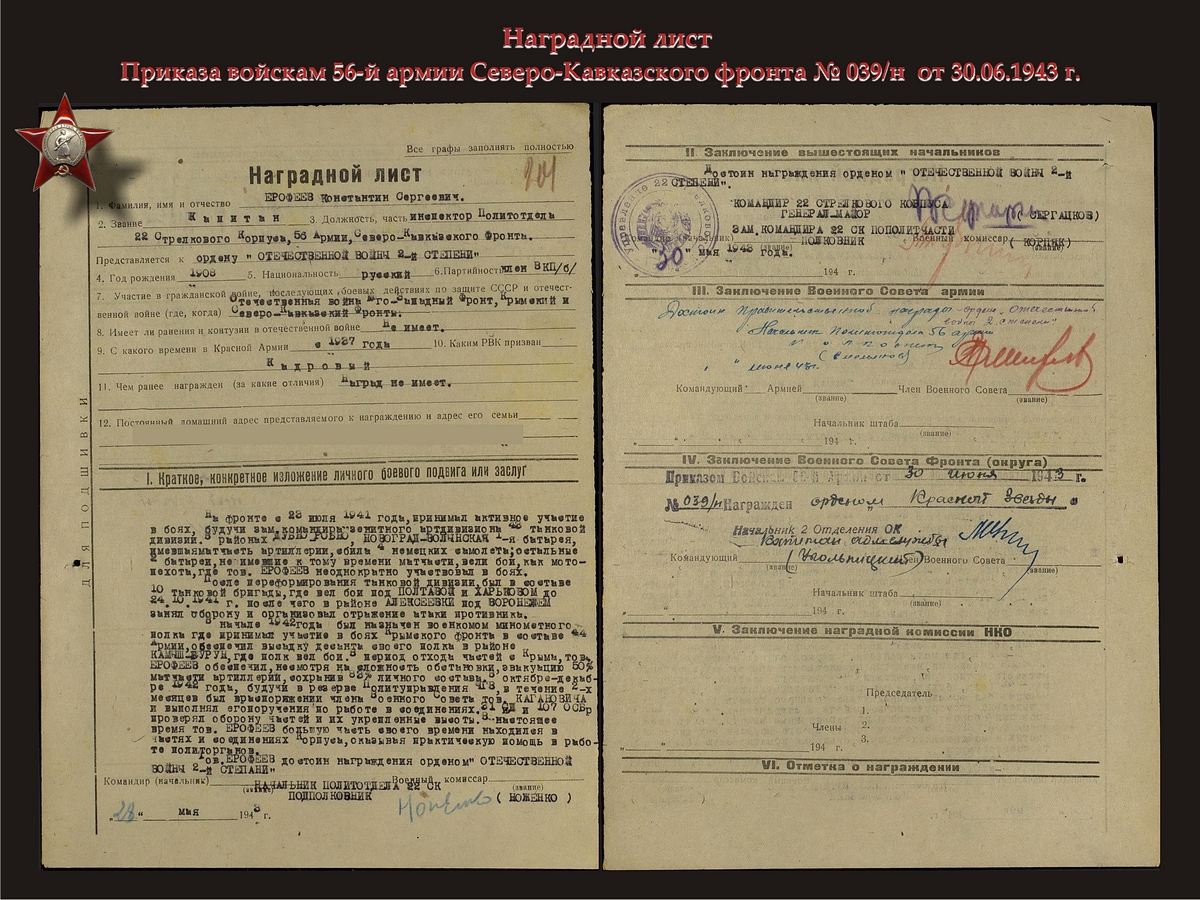 Наградной лист
Приказа войскам 56-й армии Северо-Кавказского фронта № 039/н от 30.06.1943 г.
Все графы заполнять полностью
Наградной лист
1. Фамилия, имя и отчество ЕРОФЕЕВ Константин Сергеевич.
2. Звание Капитан 3. Должность, часть инспектор Политотдела
22 Стрелкового Корпуса, 56 Армии, Северо-Кавказского Фронта.
Представляется к ордену " ОТЕЧЕСТВЕННОЙ ВОЙНЫ 2-й СТЕПЕНИ"
4. Год рождения 1908 5. Национальность русский 6. Партийность член ВКП/б/
7. Участие в гражданской войне, последующих боевых действиях по защите СССР и отечест-
венной войне (где, когда) Отечественная война Юго-Западный Фронт, Крымский и
Северо-Кавказский Фронты.
8. Имеет ли ранения и контузии в отечественной войне Не имеет.
9. С какого времени в Красной Армии с 1937 года 10. Каким РВК призван
Кадровый
11. Чем ранее награжден (за какие отличия) Наград не имеет.
12. Постоянный домашний адрес представляемого к награждению и адрес его семьи
ДЛЯ ПОДШИВКИ
I. Краткое, конкретное изложение личного боевого подвига или заслуг
На фронте с 23 июля 1941 года, принимал активное участие
в боях, будучи зам. командира зенитного артдивизиона танковой
дивизии. В районах ДУБНО, РОВНО, НОВОГРАД-ВОЛЫНСКАЯ 1-я батарея,
имевшая матчасть артиллерии, сбила 4 немецких самолета; остальные
батареи, не имевшие к тому времени матчасти, вели бои, как мото-
пехота, где тов. ЕРОФЕЕВ неоднократно участвовал в боях.
После переформирования танковой дивизии, был в составе
10 танковой бригады, где вел бои под ПОЛТАВОЙ и ХАРЬКОВОМ до
24.10.1941 г. после чего в районе АЛЕКСЕЕВКИ под ВОРОНЕЖЕМ
занял оборону и организовал отражение атаки противника.
В начале 1942 года был назначен военкомом минометного
полка где принимал участие в боях Крымского фронта в составе 44
Армии, обеспечил высадку десанта своего полка в районе
КАМЫШ-БУРУН, где полк вел бои. В период отхода частей с Крыма, тов.
ЕРОФЕЕВ обеспечил, несмотря на сложность обстановки, эвакуацию 50%
матчасти артиллерии, сохранив 83% личного состава. В октябре-декаб-
ре 1942 года, будучи в резерве Политуправления ЧГВ, в течение 2-х
месяцев был в распоряжении члена Военного Совета тов. КАГАНОВИЧА
и выполнял его поручения по работе в соединениях. 31 СД и 107 ОСБр
проверял оборону частей и их укрепленные высоты. В настоящее
время тов. ЕРОФЕЕВ большую часть своего времени находился в
частях и соединениях Корпуса, оказывая практическую помощь в рабо-
те политорганов.
Тов. ЕРОФЕЕВ достоин награждения орденом" ОТЕЧЕСТВЕННОЙ
ВОЙНЫ 2-й СТЕПАНИ"
Командир (начальник) Военный комиссар
(звание) (звание)
НАЧАЛЬНИК ПОЛИТОТДЕЛА 22 СК
ПОДПОЛКОВНИК ( НОЖЕНКО )
28 " мая 1943 г.
II. Заключение вышестоящих начальников
Достоин награждения орденом " ОТЕЧЕСТВЕННОЙ ВОЙНЫ 2-й
СТЕПЕНИ".
КОМАНДИР 22 СТРЕЛКОВОГО КОРПУСА
ГЕНЕРАЛ-МАЙОР ( СЕРГАЦКОВ)
ЗАМ. КОМАНДИРА 22 СК ПО ПОЛИТЧАСТИ
Командир (начальник) Военный комиссар
ПОЛКОВНИК ( КОРПЯК)
(звание) (звание)
"30" мая 1943 года.
194 г.
III. Заключение Военного Совета армии
Достоин Правительственной награды - ордена „Отечественной
войны 2 степени"
Начальник Политотдела 56 армии
полковник
(Емельянов)
" июня 43 г.
Командующий Армией Член Военного Совета
(звание) (звание)
Начальник штаба
(звание)
" 194 г.
IV. Заключение Военного Совета Фронта (округа)
Приказом Войскам 56-й Армии от 30 июня 1943 г.
№ 039/н Награжден орденом Красной Звезды
Начальник 2 Отделения ОК
Капитан адм. службы
(Угольницкий)
Командующий Член Военного Совета
(звание) (звание)
Начальник штаба
(звание)
" 194 г.
V. Заключение наградной комиссии НКО
Председатель
1.
Члены 2.
3.
" " 194 г.
VI. Отметка о награждении